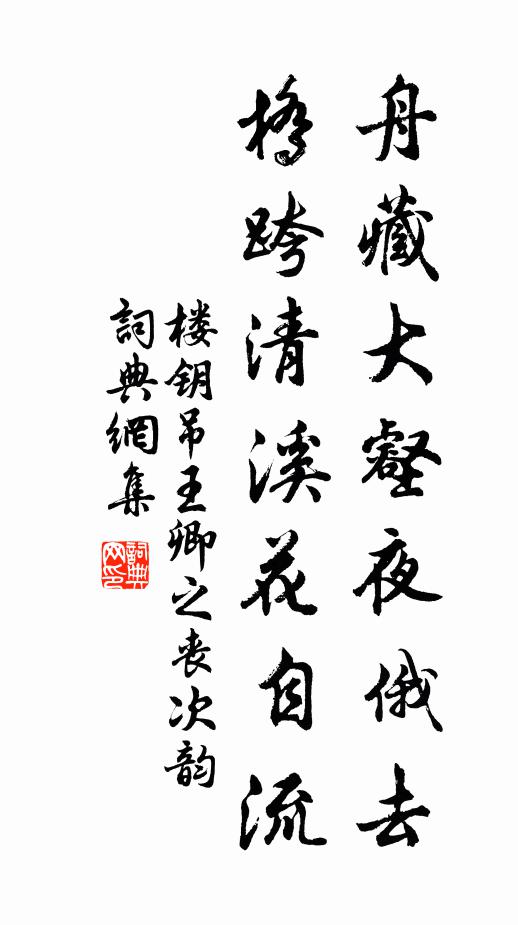 舟藏大壑夜俄去
橋跨清溪花自流
楼钥吊王卿之丧次韵
詞典網集
詞典
网印